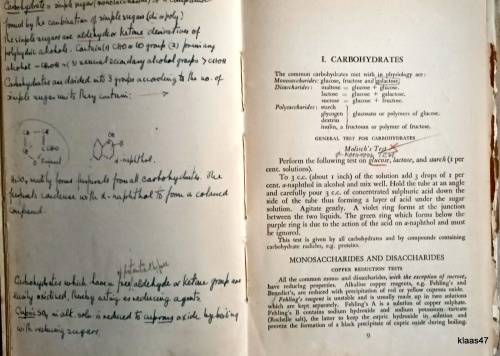 Carbohydrate = simple sugar (monosaccharides) or a compound
formed by the combination of simple sugars (di or poly)
The simple sugars are aldehyde or ketone derivatives of
polyhydric alcohols. Contain (1) CHO or CO group (2) primary
alcohol - CH2OH (3) secondary alcohol groups >CHOH
Carbohydrates are divided into 3 groups according to the no. of
simple sugar units they contain:
α-naphthol.
H2SO4 mostly forms furfurals from all carbohydrates. The
furfurals condense with α-naphthol to form a coloured
compound.
Carbohydrates which have a free aldehyde or ketone group are
easily oxidised, thereby acting as reducing agents.
Cupric in alk. soln is reduced to cuprous oxide by boiling
with reducing sugars.
I. CARBOHYDRATES
The common carbohydrates met with in physiology are:
Monosaccharides: glucose, fructose and galactose.
Disaccharides: maltose = glucose + glucose.
lactose = glucose + galactose.
sucrose = glucose + fructose.
Polysaccharides: starch
glycogen } glucosans or polymers of glucose.
dextrin
inulin, a fructosan or polymer of fructose.
GENERAL TEST FOR CARBOHYDRATES
Molisch's Test
α-NAPHTHOL TEST
Perform the following test on glucose, lactose, and starch (1 per
cent. solutions).
To 3 c.c. (about 1 inch) of the solution add 3 drops of 1 per
cent. α-naphthol in alcohol and mix well. Hold the tube at an angle
and carefully pour 3 c.c. of concentrated sulphuric acid down the
side of the tube thus forming a layer of acid under the sugar
solution. Agitate gently. A violet ring forms at the junction
between the two liquids. The green ring which forms below the
purple ring is due to the action of the acid on α-naphthol and must
be ignored.
This test is given by all carbohydrates and by compounds containing
carbohydrate radicles, e.g. proteins.
MONOSACCHARIDES AND DISACCHARIDES
COPPER REDUCTION TESTS
All the common mono and disaccharides, with the exception of sucrose,
have reducing properties. Alkaline copper reagents, e.g. Fehling's and
Benedict's, are reduced with precipitation of red or yellow cuprous oxide.
Fehling's reagent is unstable and is usually made up in two solutions
which are kept separately. Fehling's A is a solution of copper sulphate.
Fehling's B contains sodium hydroxide and sodium potassium tartrate
(Rochelle salt), the latter to keep the cupric hydroxide in solution and
prevent the formation of a black precipitate of cupric oxide during boiling.
9
klaas47